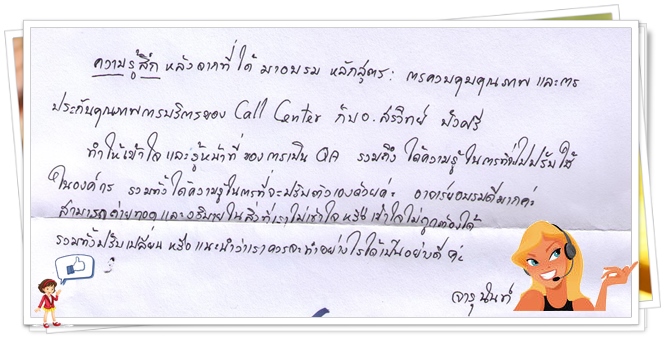 ความรู้สึก หลังจากที่ได้ มาอบรม หลักสูตร : การควบคุมคุณภาพ และการ
ประกันคุณภาพการบริการของ Call Center กับ อ. สรวิทย์ บัวศรี
ทำให้เข้าใจ และรู้หน้าที่ ของการเป็น QA รวมถึง ได้ความรู้ในการที่ไปปรับใช้
ในองค์กร รวมทั้งได้ความรู้ในการที่จะปรับตัวเองด้วยค่ะ อาจารย์อบรมดีมากค่ะ
สามารถถ่ายทอดและอธิบายในสิ่งที่เราไม่เข้าใจ หรือเข้าใจไม่ถูกต้องได้
รวมทั้งปรับเปลี่ยน หรือแนะนำว่าเราควรจะทำอย่างไรได้เป็นอย่างดี ค่ะ
จารุนันท์